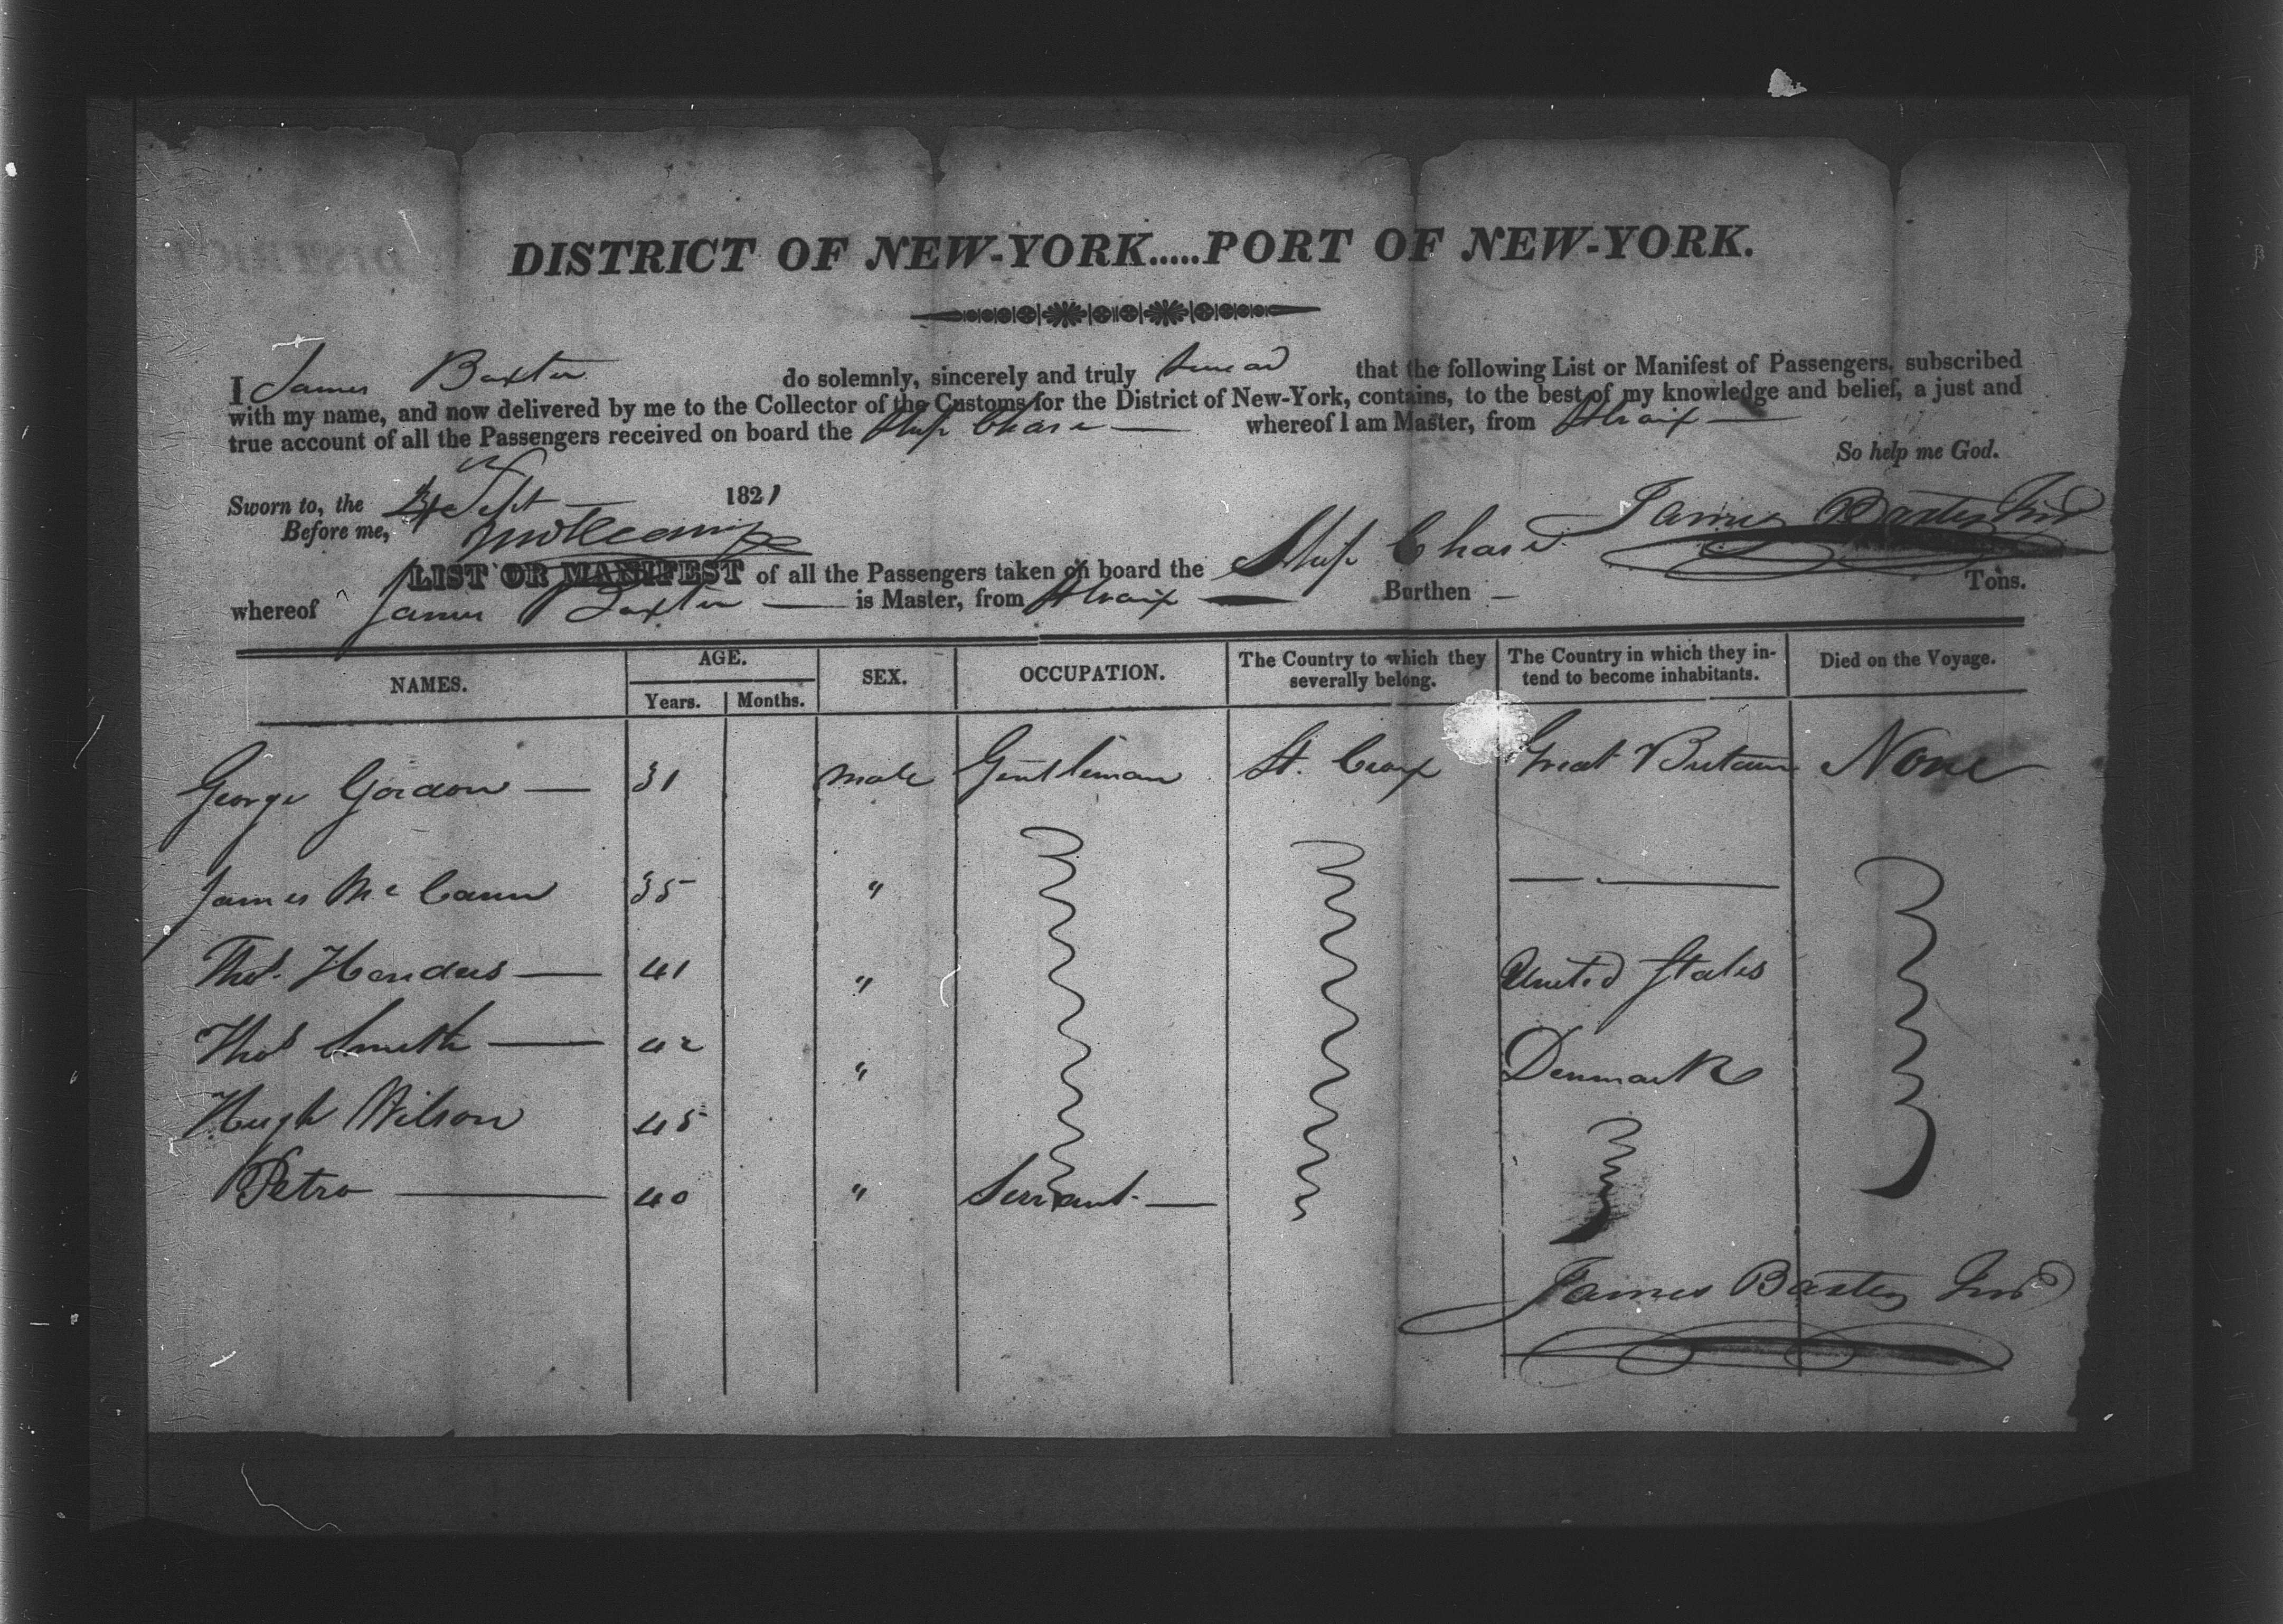 DISTRICT OF NEW-YORK.....PORT OF NEW-YORK.
I James Baxter do solemnly, sincerely and truly swear that the following List or Manifest of Passengers, subscribed
with my name, and now delivered by me to the Collector of the Customs for the District of New-York, contains, to the best of my knowledge and belief, a just and
true account of all the Passengers received on board the Ship Chase whereof I am Master, from St Croix
So help me God.
Sworn to, the Sept 1821
Before me,
James Baxter Jnr
LIST OR MANIFEST of all the Passengers taken on board the Ship Chase
whereof James Baxter is Master, from St Croix Burthen Tons.
NAMES. AGE. Years. Months. SEX. OCCUPATION. The Country to which they severally belong. The Country in which they in-tend to become inhabitants. Died on the Voyage.
George Gordon 31 male Gentleman St. Croix Great Britain None
James Mc Cann 35 "
Thos. Henders 41 " United States
Thos Smith 42 " Denmark
Hugh Wilson 45
Petro 40 " Servant
James Baxter Jnr